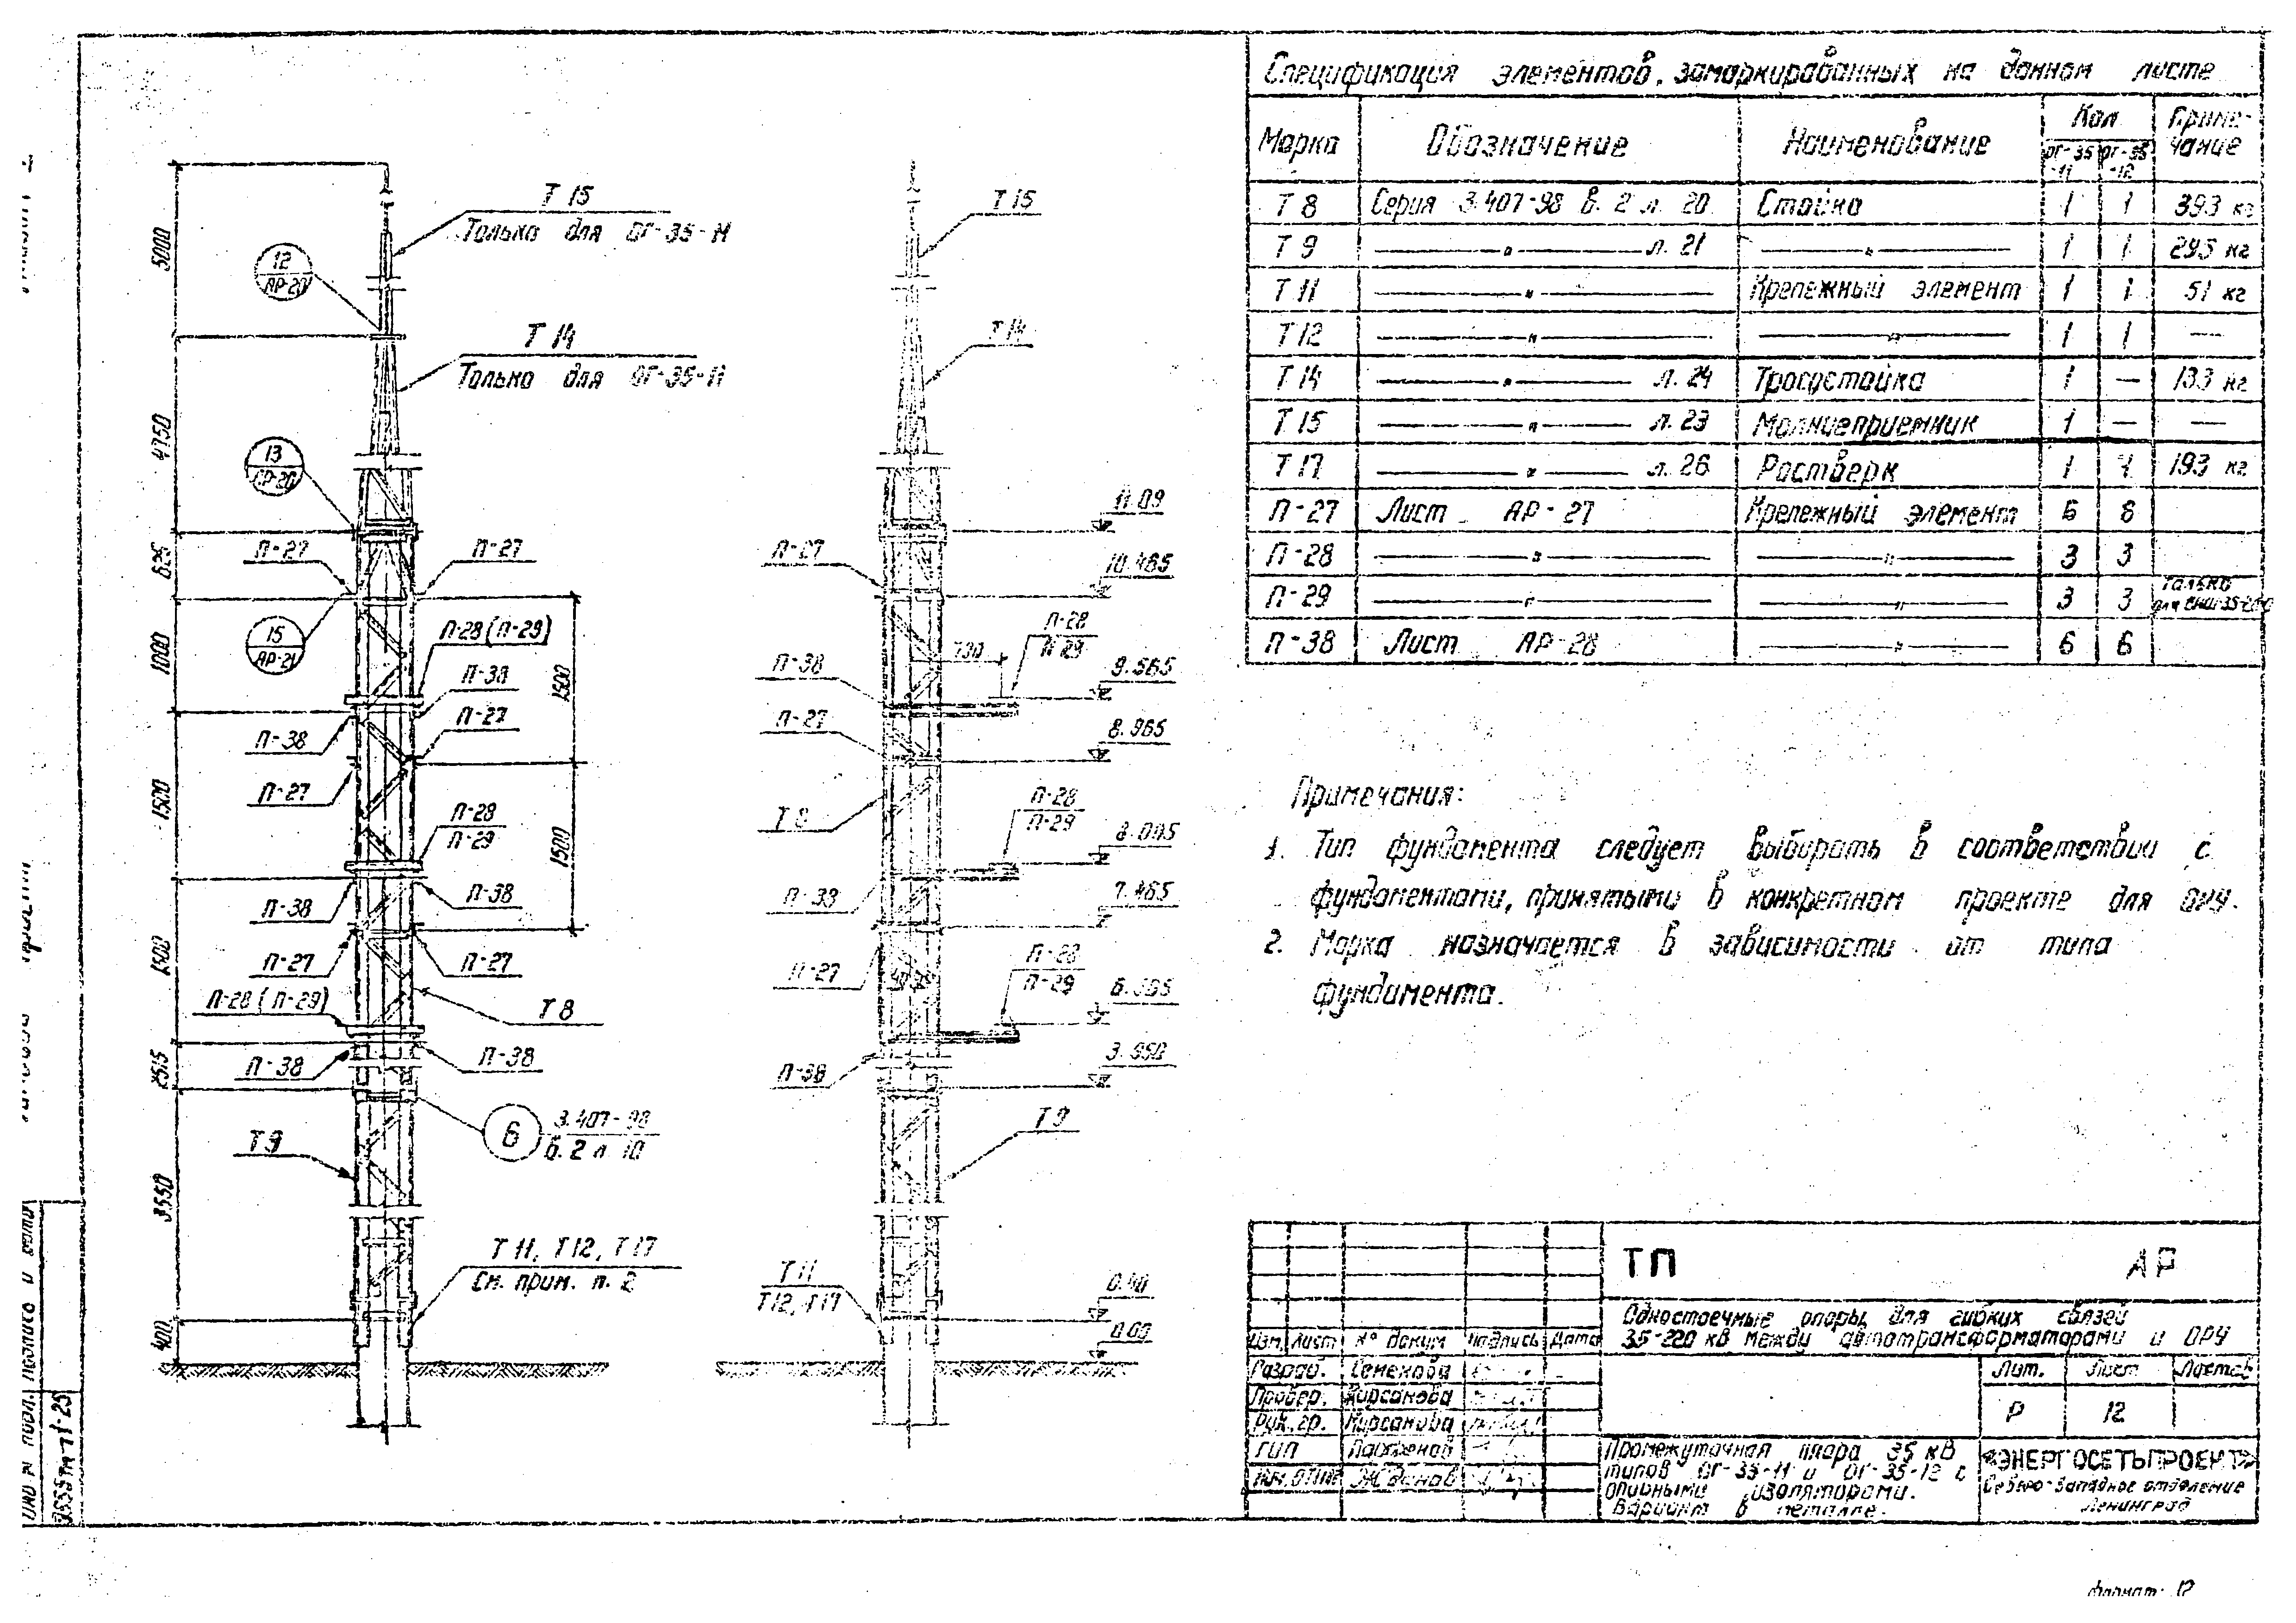 Спецификация элементов, замаркированных на данном листе
Марка Обозначение Наименование Кол. Приме-чание
ОГ-35-11 ОГ-35-12
Т 8 Серия 3.407-98 в. 2 л. 20 Стойка 1 1 393 кг
Т 9 —"— л. 21 —"— 1 1 295 кг
Т 11 —"— Крепежный элемент 1 1 51 кг
Т 12 —"— —"— 1 1 —
Т 14 —"— л. 24 Тросостойка 1 — 133 кг
Т 15 —"— л. 23 Молниеприемник 1 — —
Т 17 —"— л. 26 Ростверк 1 193 кг
П-27 Лист АР-27 Крепежный элемент 6 6
П-28 —"— —"— 3 3
П-29 —"— —"— 3 3 только для
П-38 Лист АР-28 —"— 6 6
Примечания:
1. Тип фундамента следует выбирать в соответствии с
фундаментами, принятыми в конкретном проекте для ОРУ.
2. Марка назначается в зависимости от типа
фундамента.
5000
4750
625
1000
1500
1500
2515
3550
400
1500
1500
Т 15
Только для ОГ-35-11
12
АР-20
Т 14
Только для ОГ-35-11
13
АР-20
П-27
П-27
15
АР-21
П-28 (П-29)
П-38
П-27
П-38
П-27
П-28
П-29
П-38
П-38
П-27
П-27
П-28 (П-29)
Т 8
П-38
П-38
6
3.407-98
в. 2 л. 10
Т 9
Т 11, Т 12, Т 17
См. прим. п. 2
Т 15
Т 14
11.09
П-27
10.465
П-28
П-29
730
П-38
9.565
П-27
8.965
П-28
П-29
Т 8
П-38
7.465
П-28
П-29
П-27
П-38
3.950
Т 9
Т 11
Т 12, Т 17
0.40
0.00
ТП АР
Одностоечные опоры для гибких связей
35-220 кВ между автотрансформаторами и ОРУ
Изм. Лист № докум. Подпись Дата
Разраб. Семенова
Провер. Кирсанова
Рук. гр. Кирсанова
ГИП
Жданов
Лит. Лист Листов
Р 12
Промежуточная опора 35 кВ
типов ОГ-35-11 и ОГ-35-12 с
опорными изоляторами.
Вариант в металле.
«ЭНЕРГОСЕТЬПРОЕКТ»
Северо-Западное отделение
Ленинград
Инв. № подл. Подпись и дата
Формат: 12